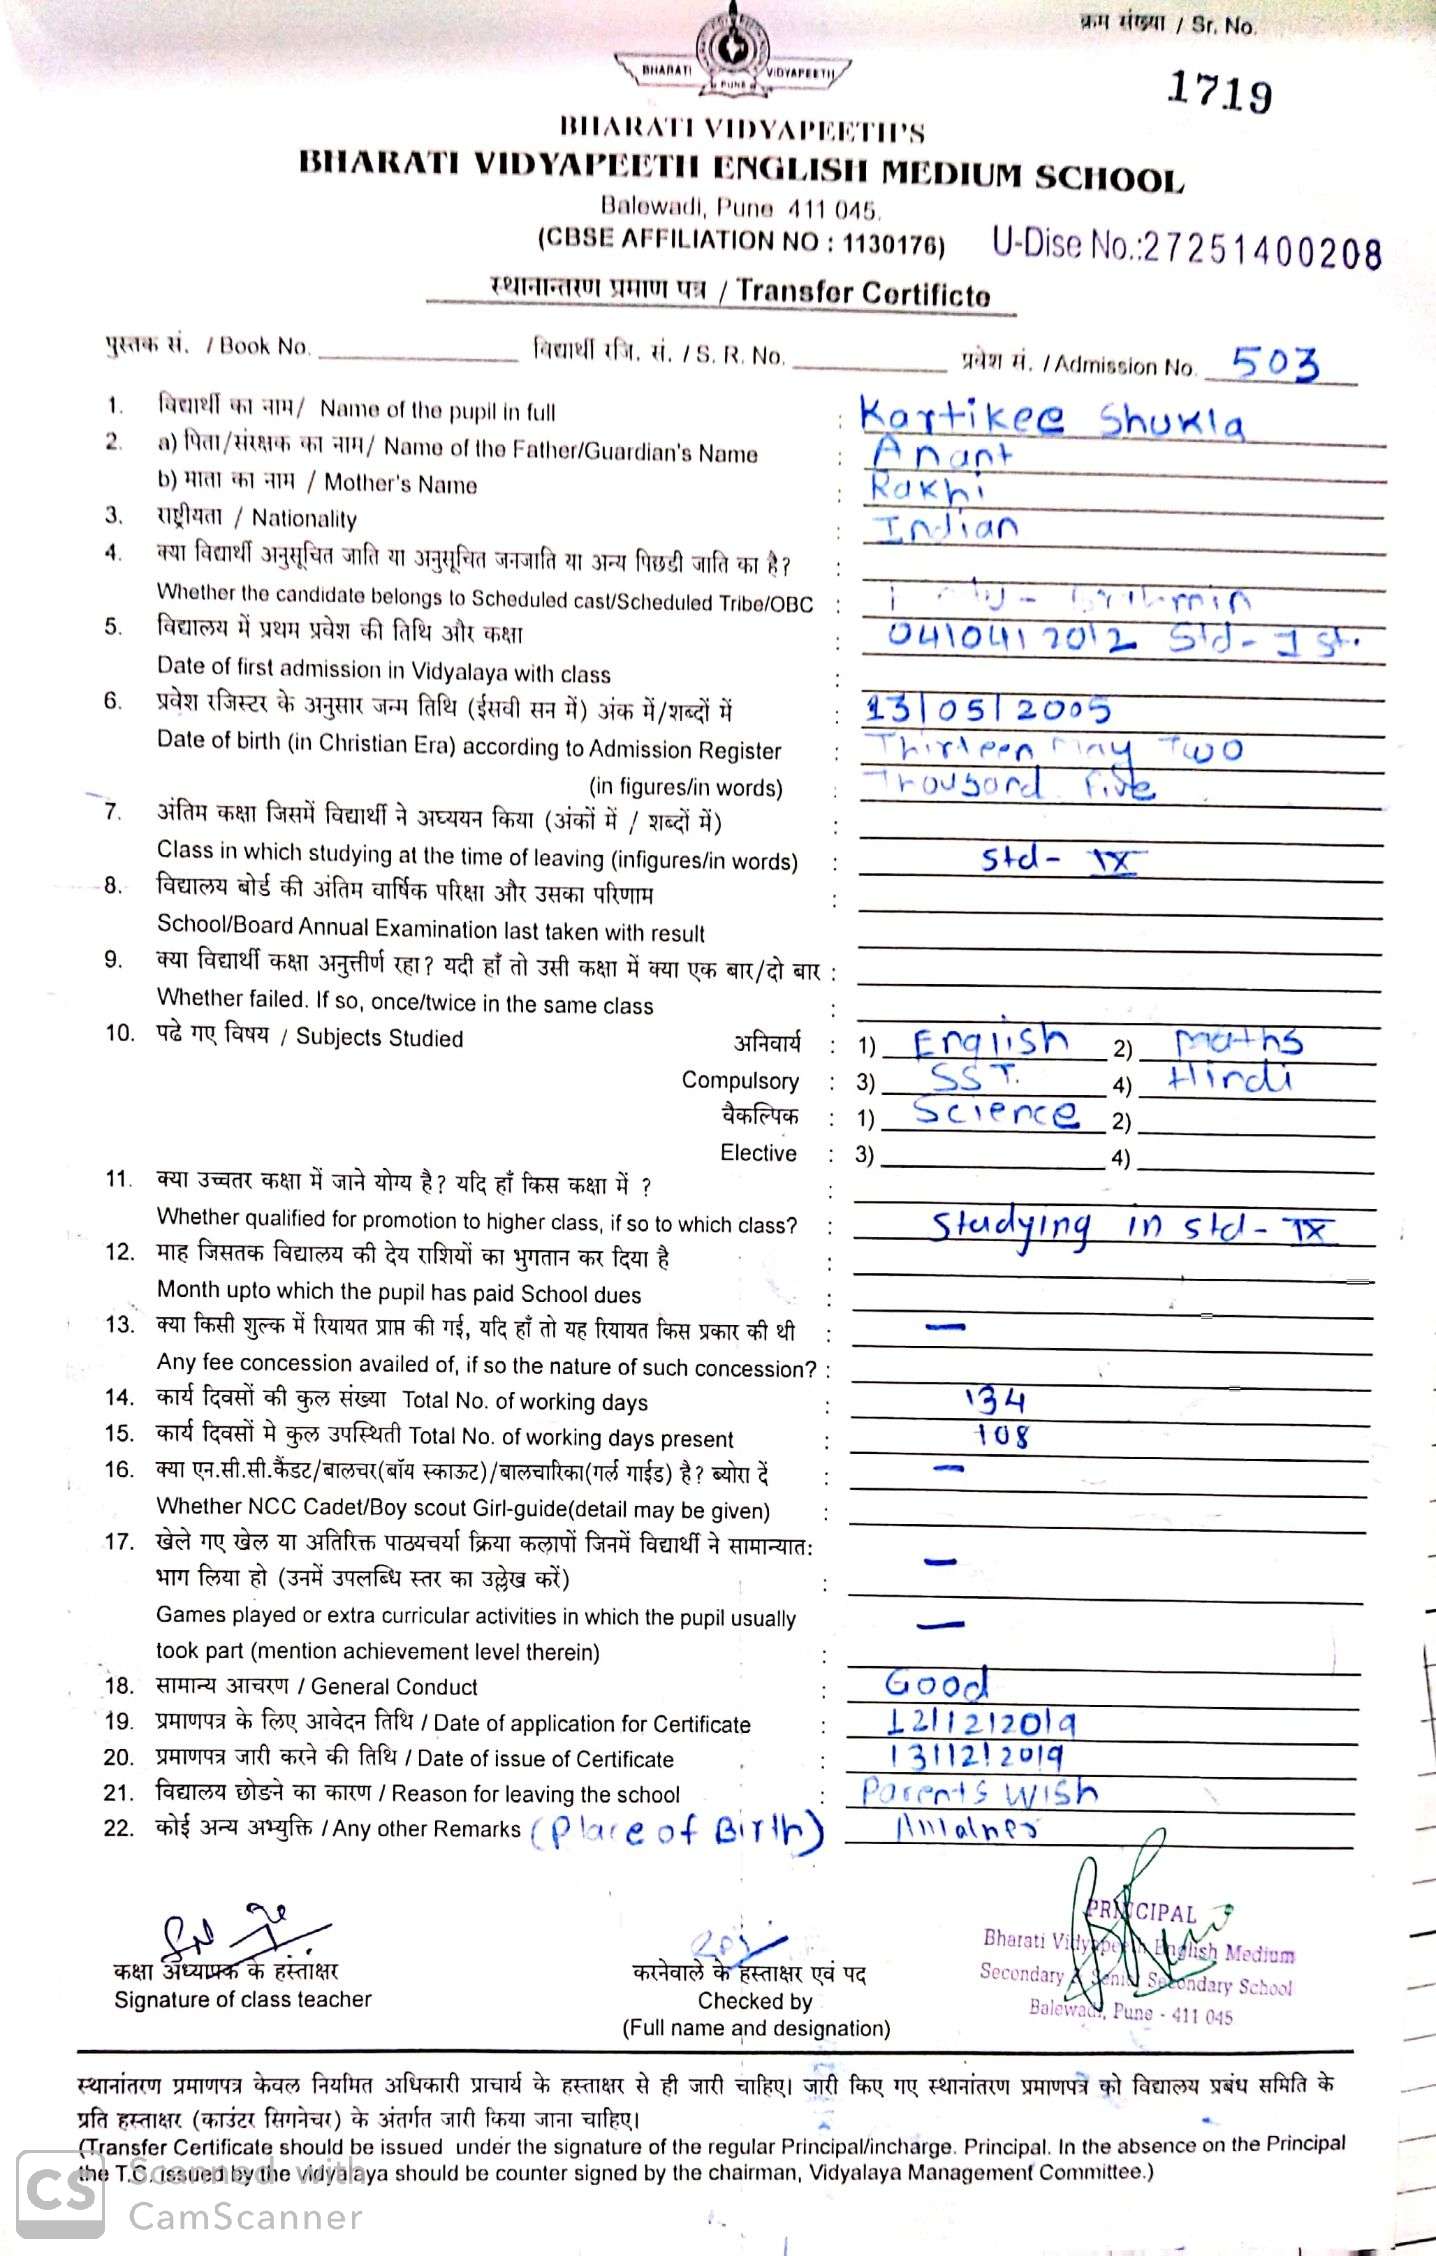 क्रम संख्या / Sr. No.
1719
BHARATI VIDYAPEETH
PUNE
BHARATI VIDYAPEETH'S
BHARATI VIDYAPEETH ENGLISH MEDIUM SCHOOL
Balewadi, Pune 411 045.
(CBSE AFFILIATION NO : 1130176) U-Dise No.:27251400208
स्थानान्तरण प्रमाण पत्र / Transfer Certificte
पुस्तक सं. / Book No. विद्यार्थी रजि. सं. / S. R. No. प्रवेश सं. / Admission No. 503
1. विद्यार्थी का नाम/ Name of the pupil in full : Kartikee Shukla
2. a) पिता/संरक्षक का नाम/ Name of the Father/Guardian's Name : Anant
b) माता का नाम / Mother's Name : Rakhi
3. राष्ट्रीयता / Nationality : Indian
4. क्या विद्यार्थी अनुसूचित जाति या अनुसूचित जनजाति या अन्य पिछडी जाति का है? :
Whether the candidate belongs to Scheduled cast/Scheduled Tribe/OBC :
5. विद्यालय में प्रथम प्रवेश की तिथि और कक्षा : 04/04/2012 Std- 1st.
Date of first admission in Vidyalaya with class :
6. प्रवेश रजिस्टर के अनुसार जन्म तिथि (ईसवी सन में) अंक में/शब्दों में : 13/05/2005
Date of birth (in Christian Era) according to Admission Register : Thirteen May Two
(in figures/in words) : Trousord Five
7. अंतिम कक्षा जिसमें विद्यार्थी ने अघ्ययन किया (अंकों में / शब्दों में) :
Class in which studying at the time of leaving (infigures/in words) : Std- IX
8. विद्यालय बोर्ड की अंतिम वार्षिक परिक्षा और उसका परिणाम :
School/Board Annual Examination last taken with result
9. क्या विद्यार्थी कक्षा अनुत्तीर्ण रहा? यदी हाँ तो उसी कक्षा में क्या एक बार/दो बार :
Whether failed. If so, once/twice in the same class :
10. पढे गए विषय / Subjects Studied अनिवार्य : 1) English 2) Maths
Compulsory : 3) SST. 4) Hindi
वैकल्पिक : 1) Science 2)
Elective : 3) 4)
11. क्या उच्चतर कक्षा में जाने योग्य है? यदि हाँ किस कक्षा में ? :
Whether qualified for promotion to higher class, if so to which class? : Studying in std- IX
12. माह जिसतक विद्यालय की देय राशियों का भुगतान कर दिया है :
Month upto which the pupil has paid School dues :
13. क्या किसी शुल्क में रियायत प्राप्त की गई, यदि हाँ तो यह रियायत किस प्रकार की थी : —
Any fee concession availed of, if so the nature of such concession? :
14. कार्य दिवसों की कुल संख्या Total No. of working days : 134
15. कार्य दिवसों मे कुल उपस्थिती Total No. of working days present : 108
16. क्या एन.सी.सी.कैंडट/बालचर(बॉय स्काऊट)/बालचारिका(गर्ल गाईड) है? ब्योरा दें : —
Whether NCC Cadet/Boy scout Girl-guide(detail may be given) :
17. खेले गए खेल या अतिरिक्त पाठ्यचर्या क्रिया कलापों जिनमें विद्यार्थी ने सामान्यात: —
भाग लिया हो (उनमें उपलब्धि स्तर का उल्लेख करें) :
Games played or extra curricular activities in which the pupil usually —
took part (mention achievement level therein) :
18. सामान्य आचरण / General Conduct : Good
19. प्रमाणपत्र के लिए आवेदन तिथि / Date of application for Certificate : 12/12/2019
20. प्रमाणपत्र जारी करने की तिथि / Date of issue of Certificate : 13/12/2019
21. विद्यालय छोडने का कारण / Reason for leaving the school : Parents Wish
22. कोई अन्य अभ्युक्ति / Any other Remarks (Place of Birth) Amalner
PRINCIPAL
Bharati Vidyapeeth English Medium
Secondary & Senior Secondary School
Balewadi, Pune - 411 045
कक्षा अध्यापक के हस्ताक्षर
Signature of class teacher
करनेवाले के हस्ताक्षर एवं पद
Checked by
(Full name and designation)
स्थानांतरण प्रमाणपत्र केवल नियमित अधिकारी प्राचार्य के हस्ताक्षर से ही जारी चाहिए। जारी किए गए स्थानांतरण प्रमाणपत्र को विद्यालय प्रबंध समिति के
प्रति हस्ताक्षर (काउंटर सिगनेचर) के अंतर्गत जारी किया जाना चाहिए।
(Transfer Certificate should be issued under the signature of the regular Principal/incharge. Principal. In the absence on the Principal
the T.C. issued by the vidyalaya should be counter signed by the chairman, Vidyalaya Management Committee.)
CS Scanned with
CamScanner